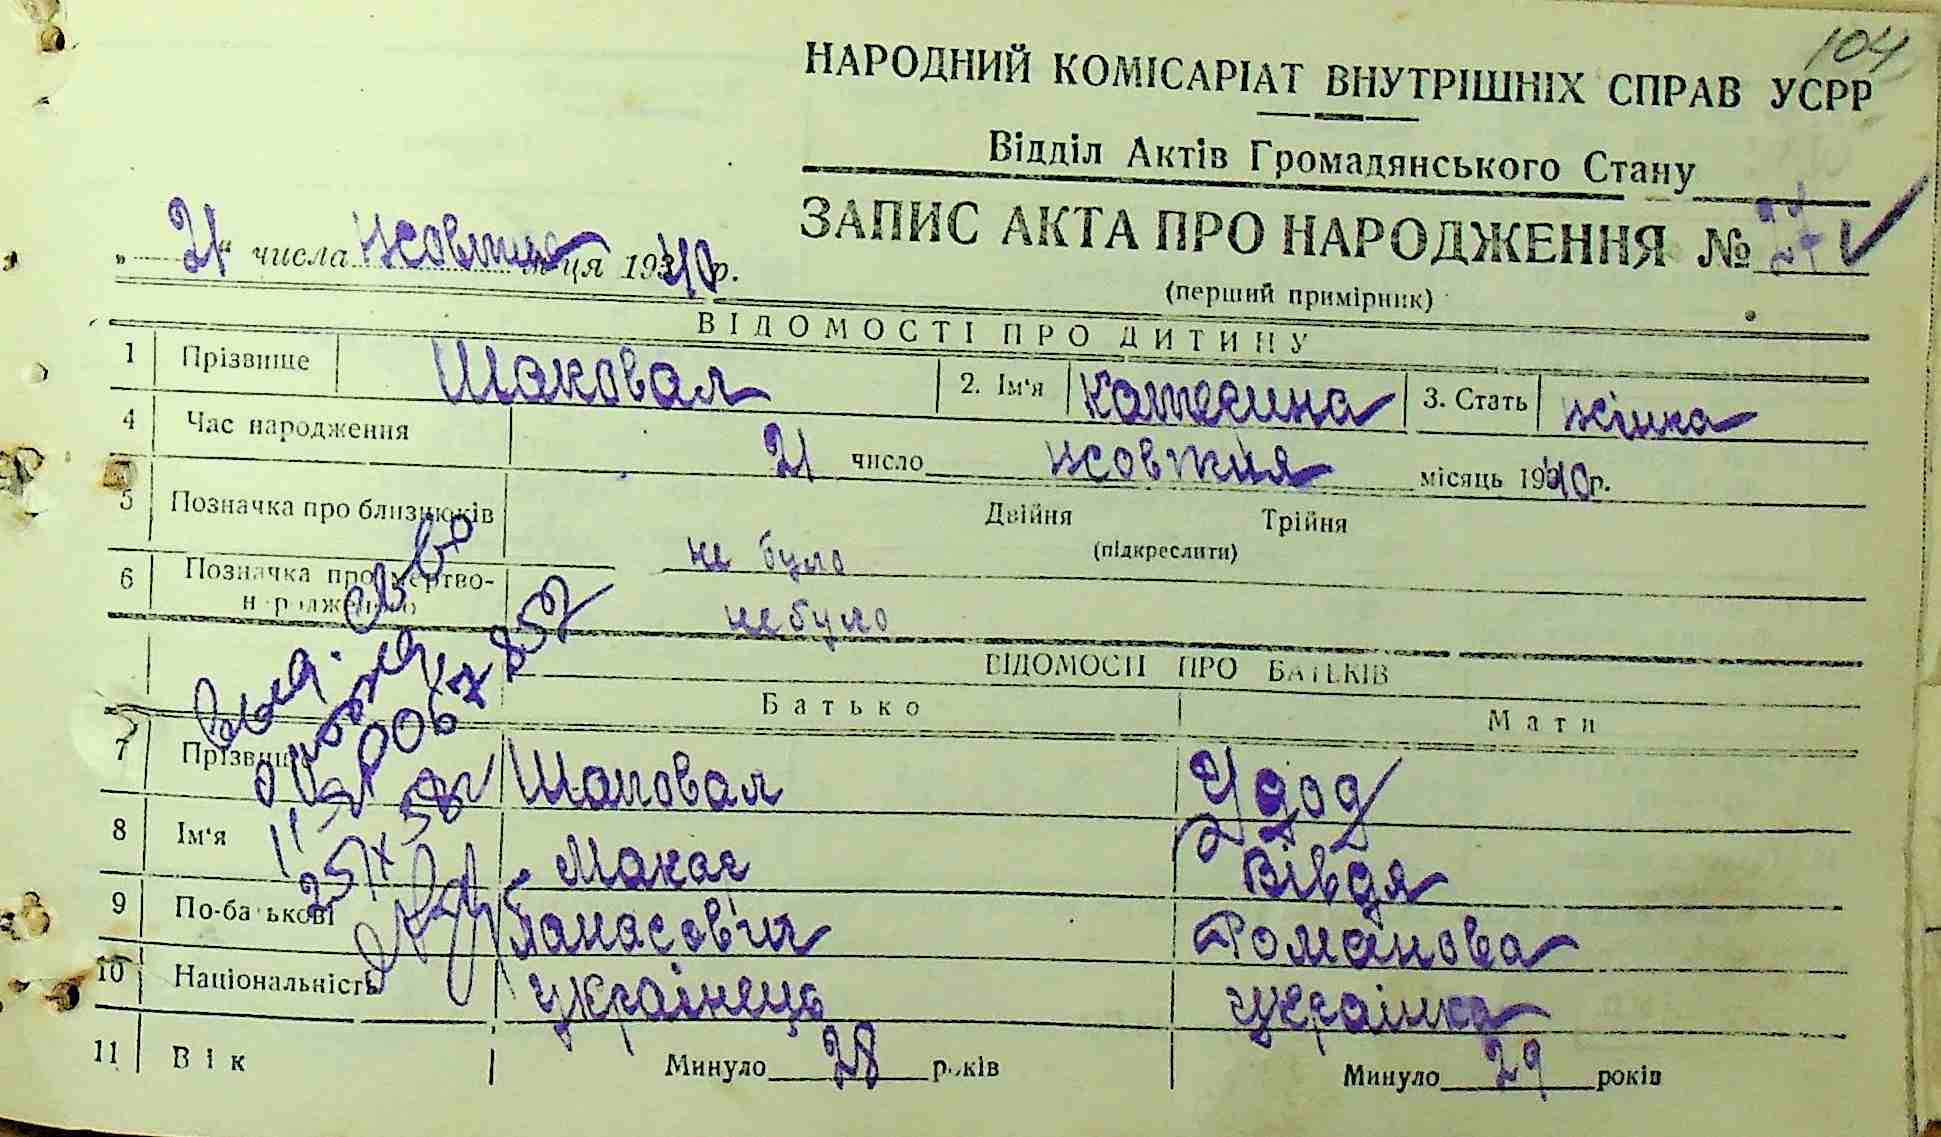 104
НАРОДНИЙ КОМІСАРІАТ ВНУТРІШНІХ СПРАВ УСРР
Відділ Актів Громадянського Стану
ЗАПИС АКТА ПРО НАРОДЖЕННЯ № 27
„ 21 “ числа жовтня м-ця 1940 р.
(перший примірник)
ВІДОМОСТІ ПРО ДИТИНУ
1 Прізвище Шаповал 2. Ім'я Катерина 3. Стать жінка
4 Час народження 21 число жовтня місяць 1940 р.
5 Позначка про близнюків Двійня Трійня
не було (підкреслити)
6 Позначка про мертво-
народженого не було
ВІДОМОСТІ ПРО БАТЬКІВ
Батько Мати
7 Прізвище Шаповал Удод
8 Ім'я Макар Вівдя
9 По-батькові Панасович Романова
10 Національність українець українка
11 Вік Минуло 28 років Минуло 29 років
Вид. св во
0067857
25/X 58г